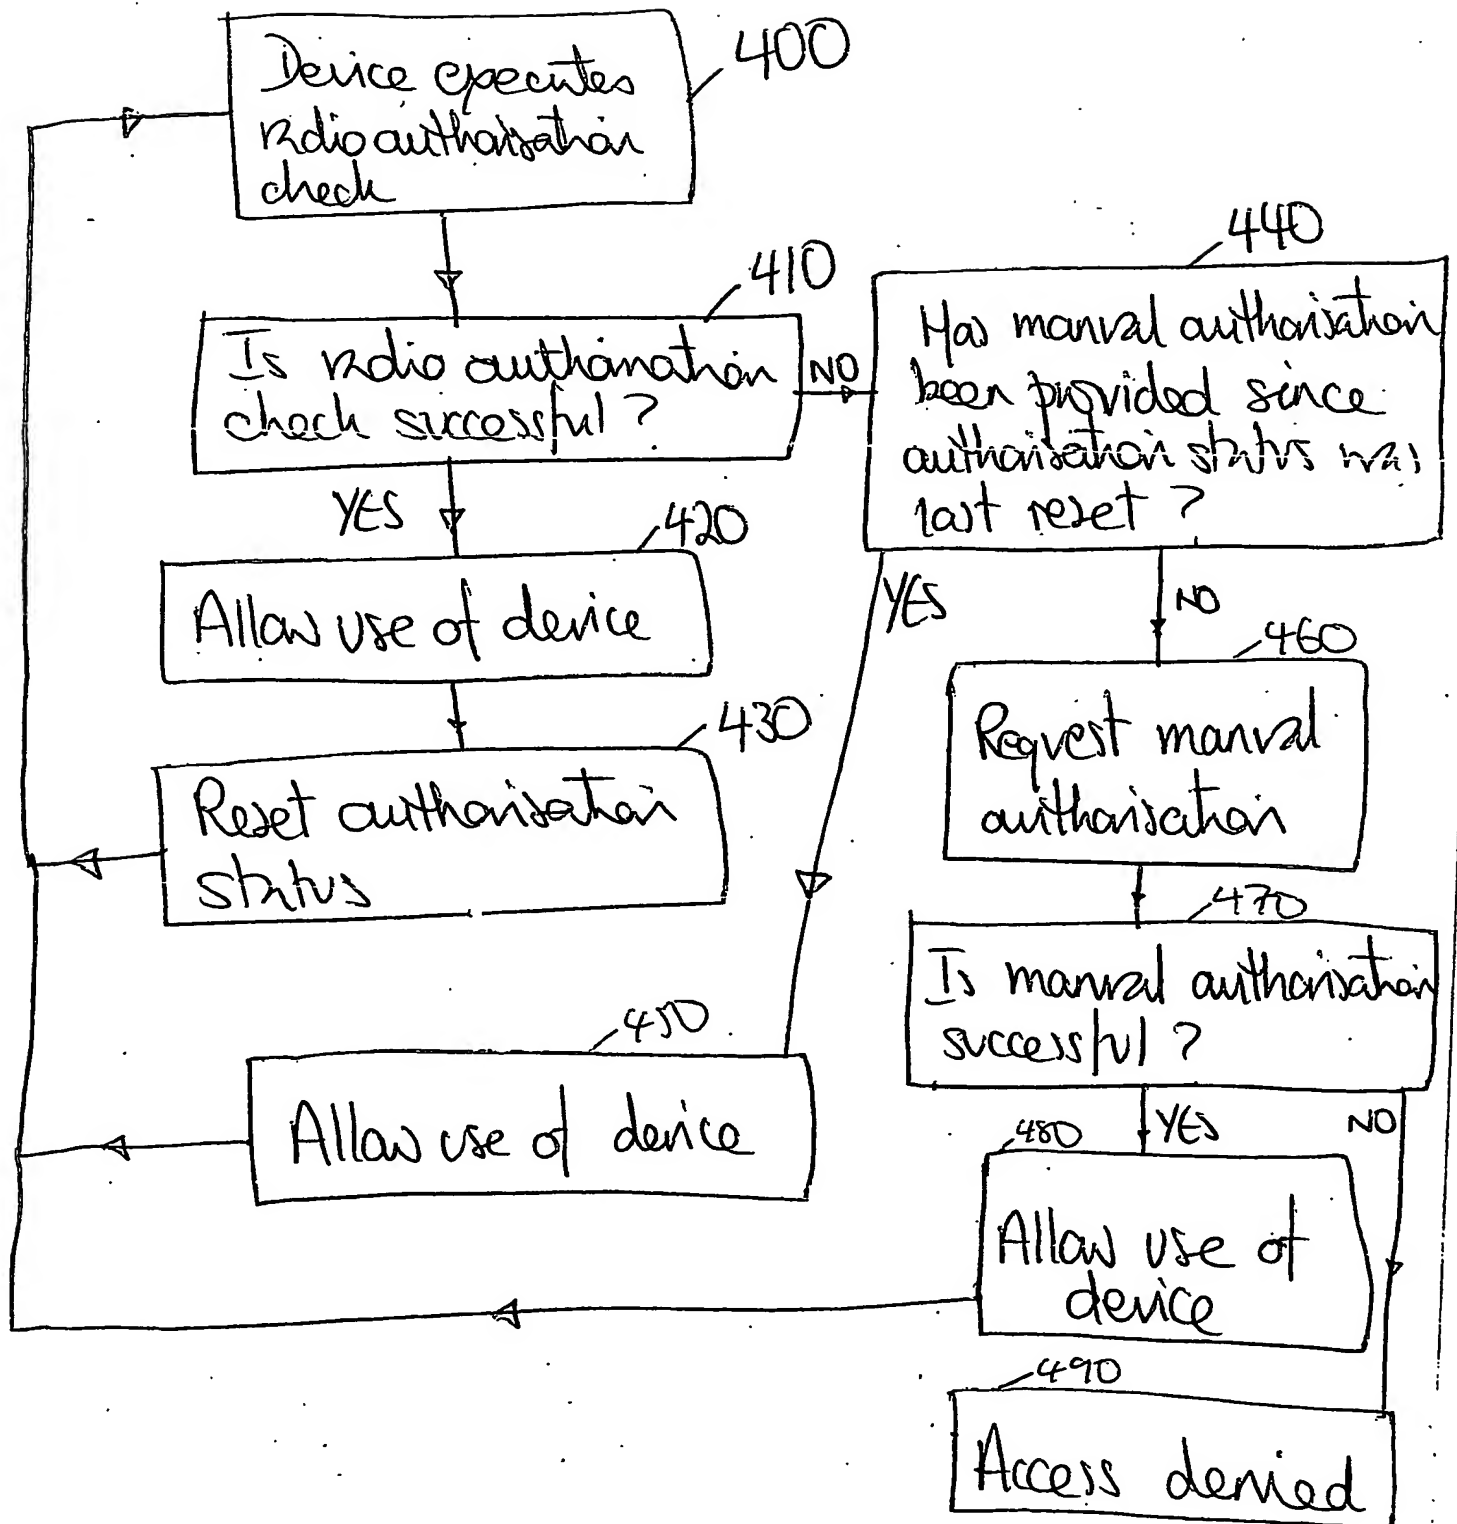 400
Device executes
radio authorisation
check
410
Is radio authorisation
check successful?
NO
YES
420
Allow use of device
430
Reset authorisation
status
440
Has manual authorisation
been provided since
authorisation status was
last reset?
YES
NO
450
Allow use of device
460
Request manual
authorisation
470
Is manual authorisation
successful?
YES
NO
480
Allow use of
device
490
Access denied